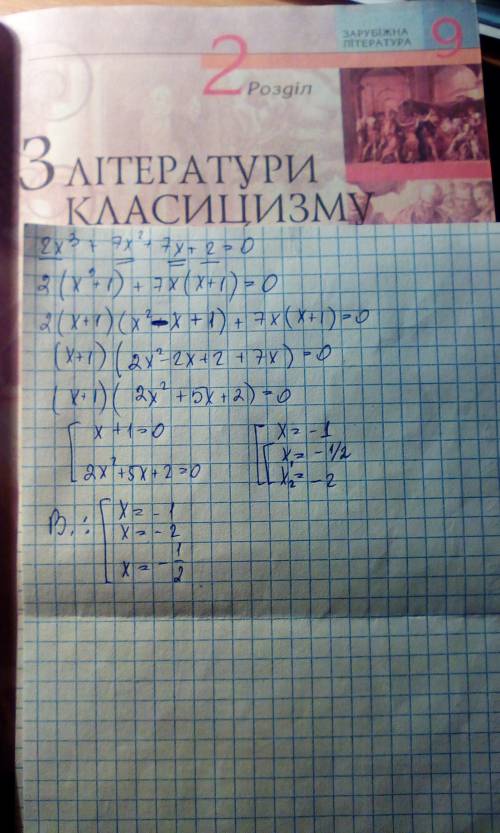 ЗАРУБІЖНА
ЛІТЕРАТУРА 9
2 Розділ
З ЛІТЕРАТУРИ
КЛАСИЦИЗМУ
2x³ + 7x² + 7x + 2 = 0
2(x³+1) + 7x(x+1) = 0
2(x+1)(x² - x + 1) + 7x(x+1) = 0
(x+1)(2x² - 2x + 2 + 7x) = 0
(x+1)(2x² + 5x + 2) = 0
[ x + 1 = 0 [ x = -1
[ x₁ = -1/2
2x² + 5x + 2 = 0 x₂ = -2
В.: [ x = -1
x = -2
x = - 1/2